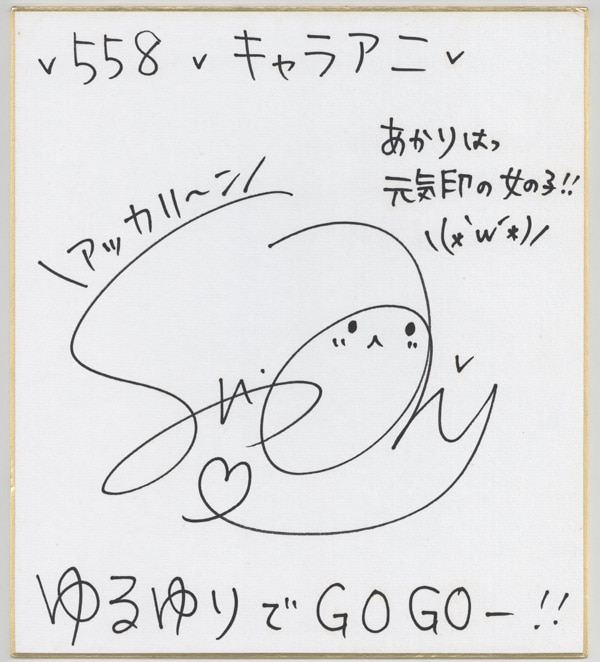 558 キャラアニ
あかりはっ
元気印の女の子!!
\(*`w´*)/
\アッカリ〜ン/
ゆるゆりでGOGOー!!